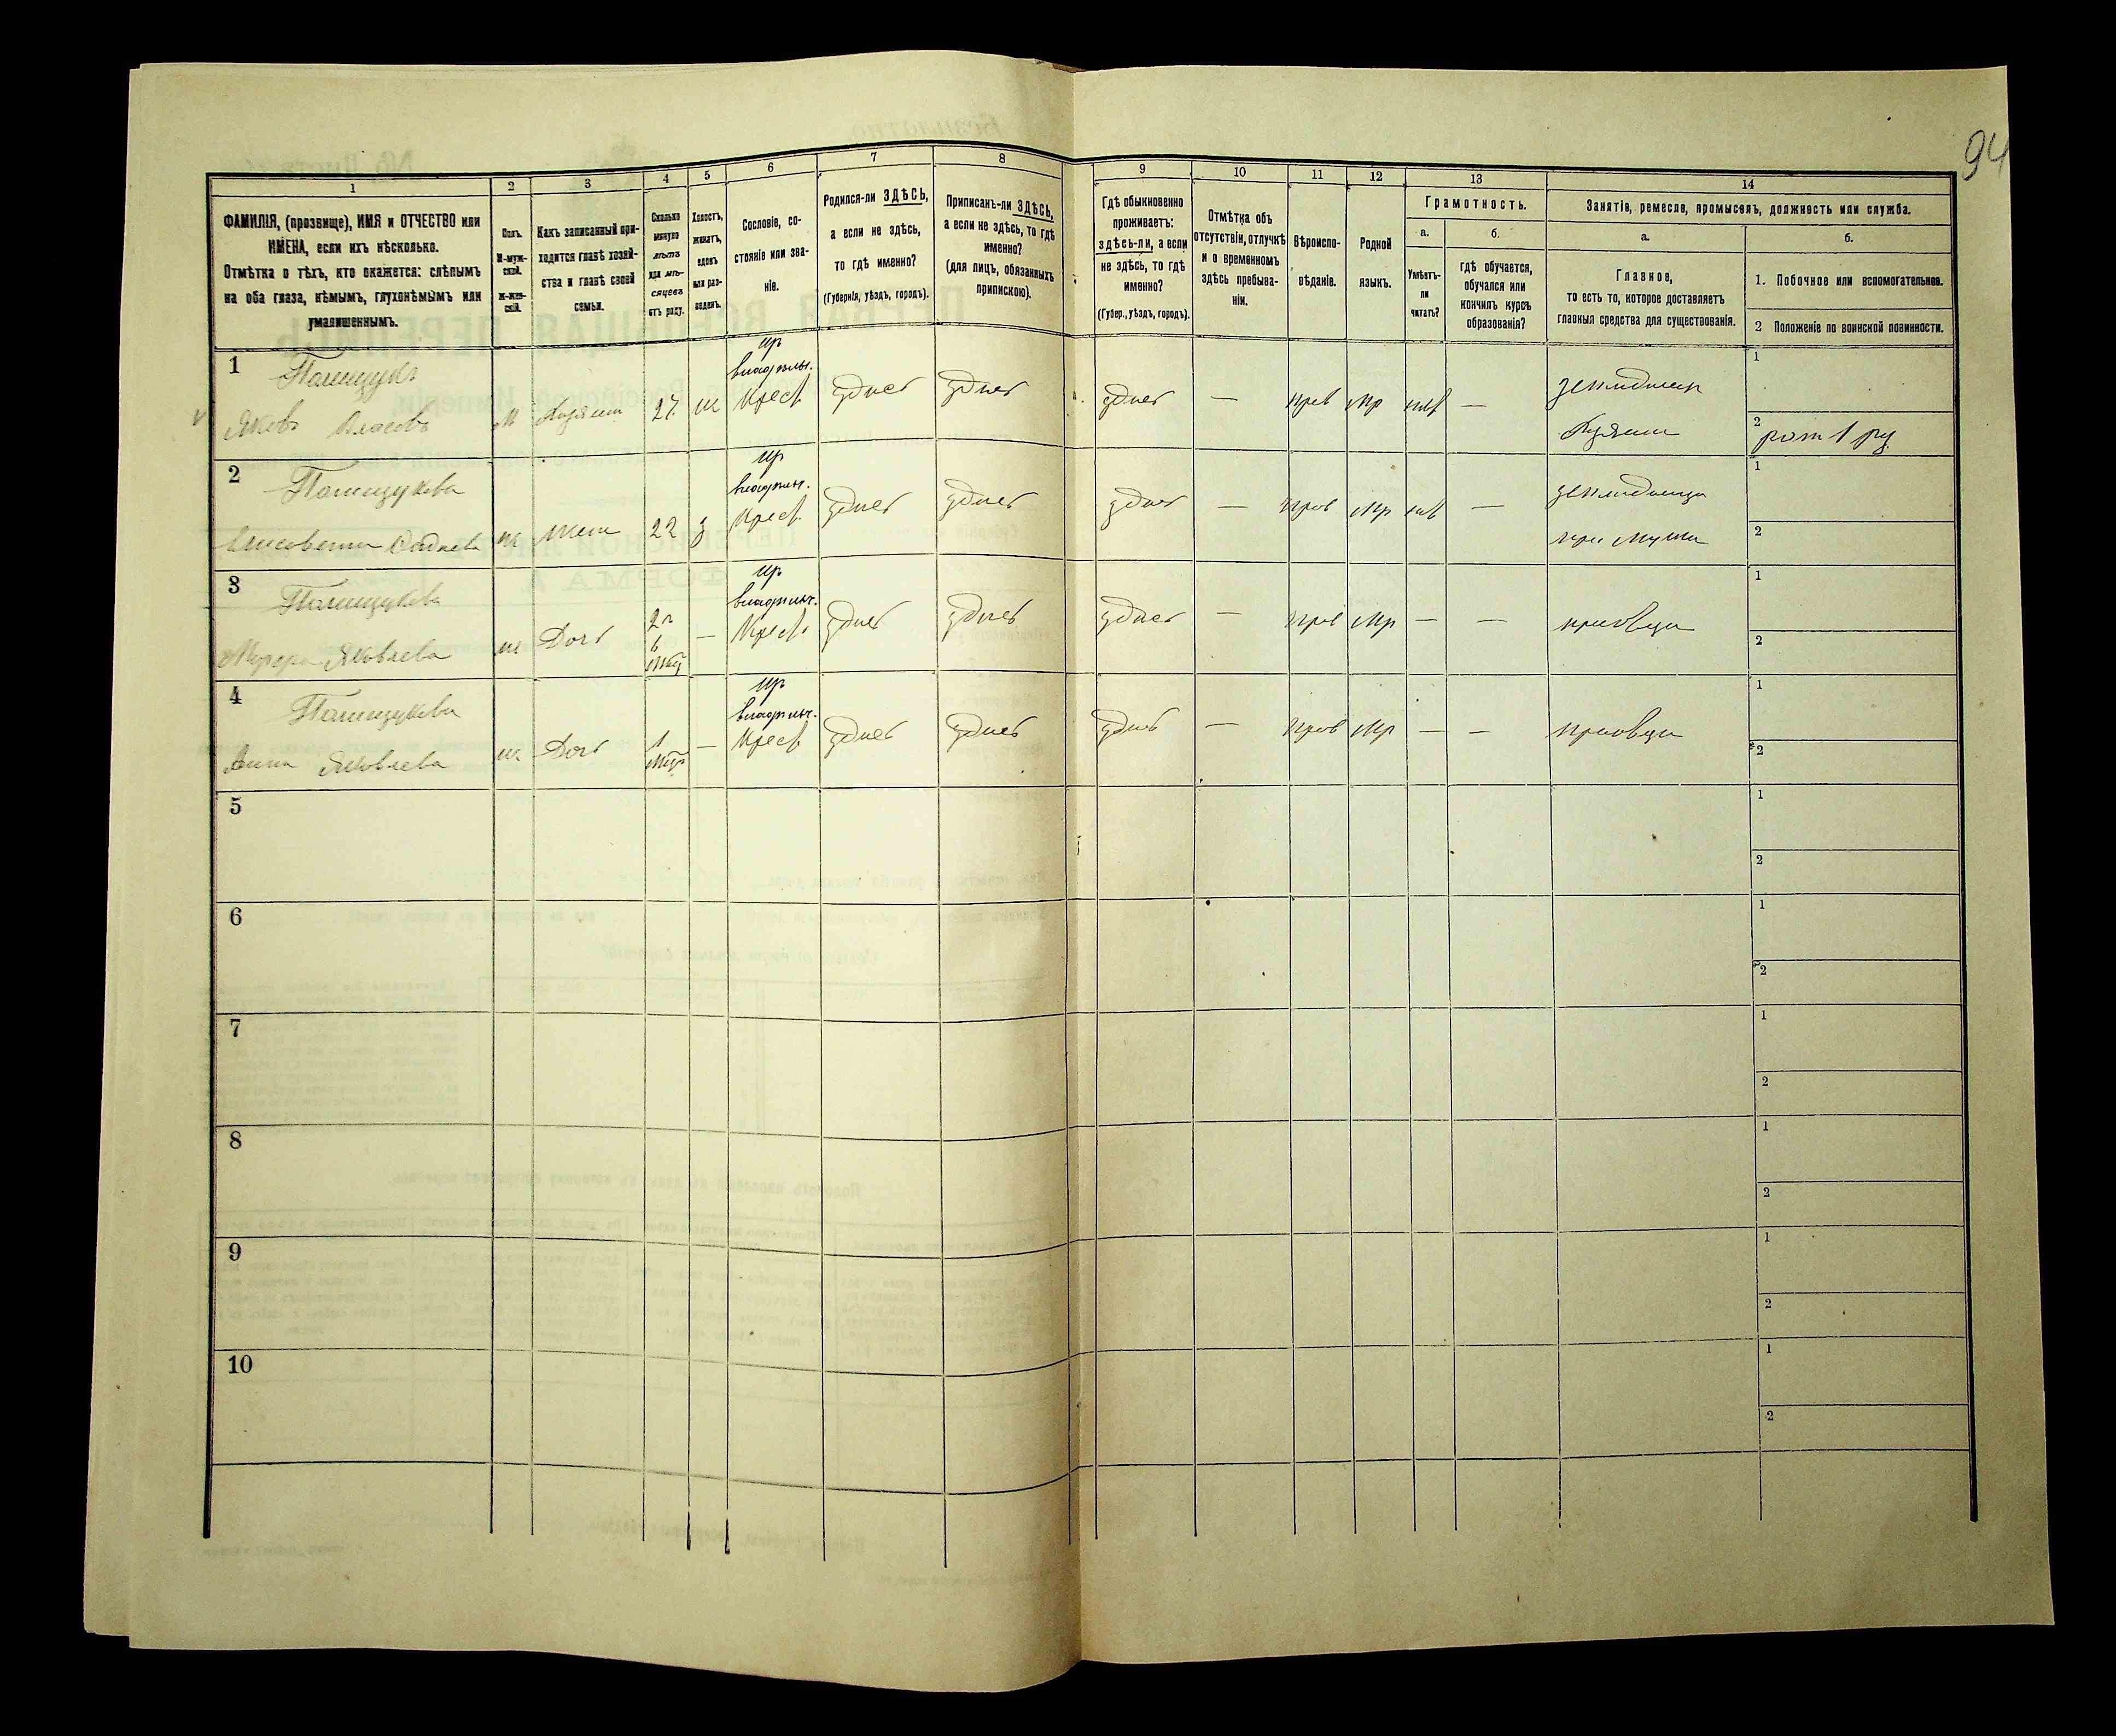 94
1
2
3
4
5
6
7
8
9
10
11
12
13
14
ФАМИЛІЯ, (прозвище), ИМЯ и ОТЧЕСТВО или
ИМЕНА, если ихъ нѣсколько.
Отмѣтка о тѣхъ, кто окажется: слѣпымъ
на оба глаза, нѣмымъ, глухонѣмымъ или
умалишеннымъ.
Полъ.
М-муж-
ской.
Ж-жен-
скій.
Какъ записанный при-
ходится главѣ хозяй-
ства и главѣ своей
семьи.
Сколько
минуло
лѣтъ
или мѣ-
сяцевъ
отъ роду.
Холостъ,
женатъ,
вдовъ
или раз-
веденъ.
Сословіе, со-
стояніе или зва-
ніе.
Родился-ли ЗДѢСЬ,
а если не здѣсь,
то гдѣ именно?
(Губернія, уѣздъ, городъ).
Приписанъ-ли ЗДѢСЬ,
а если не здѣсь, то гдѣ
именно?
(для лицъ, обязанныхъ
припискою).
Гдѣ обыкновенно
проживаетъ:
здѣсь-ли, а если
не здѣсь, то гдѣ
именно?
(Губер., уѣздъ, городъ).
Отмѣтка объ
отсутствіи, отлучкѣ
и о временномъ
здѣсь пребыва-
ніи.
Вѣроиспо-
вѣданіе.
Родной
языкъ.
Грамотность.
а.
Умѣетъ-
ли
читать?
б.
гдѣ обучается,
обучался или
кончилъ курсъ
образованія?
Занятіе, ремесло, промыселъ, должность или служба.
а.
Главное,
то есть то, которое доставляетъ
главныя средства для существованія.
б.
1. Побочное или вспомогательное.
2 Положеніе по воинской повинности.
1
Полищукъ
Яковъ Власовъ
М Хозяинъ 27 ж Крест. здѣсь здѣсь здѣсь — прав мр нѣт —
хозяинъ
1
2
2
Полищукова
Елисовета
ж жена 22 з Крест. здѣсь здѣсь здѣсь — прав мр нѣт —
при мужи
1
2
3
Полищукова
Яковлева
ж Дочь 2 г 6 мѣц — Крест. здѣсь здѣсь здѣсь — прав мр — —
1
2
4
Полищукова
Анна Яковлева
ж Дочь 1 мѣц — Крест. здѣсь здѣсь здѣсь — прав мр — —
1
2
5
1
2
6
1
2
7
1
2
8
1
2
9
1
2
10
1
2